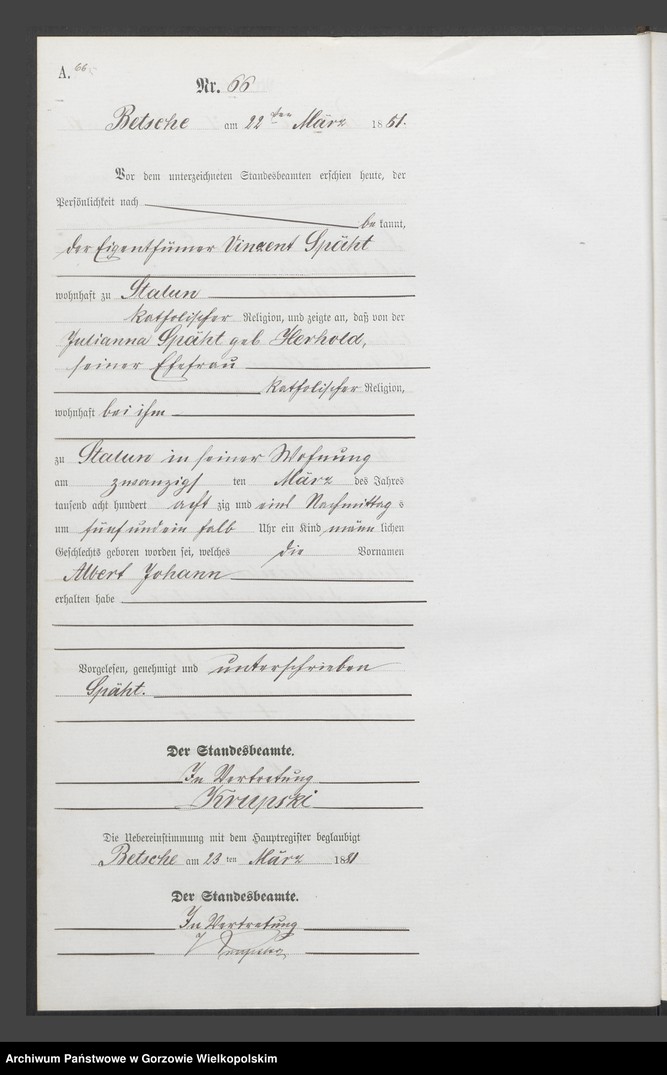 A. 66
Nr. 66
Betsche am 22 ten März 1881.
Vor dem unterzeichneten Standesbeamten erschien heute, der
Persönlichkeit nach
be kannt,
der Eigenthümer Vincent Späht
wohnhaft zu Stalun
katholischer Religion, und zeigte an, daß von der
Julianna Späht geb Herhold,
seiner Ehefrau
katholischer Religion,
wohnhaft bei ihm
zu Stalun in seiner Wohnung
am zwanzigs ten März des Jahres
tausend acht hundert acht zig und eins Nachmittag s
um fünf und ein halb Uhr ein Kind männ lichen
Geschlechts geboren worden sei, welches die Vornamen
Albert Johann
erhalten habe
Vorgelesen, genehmigt und unterschrieben
Späht.
Der Standesbeamte.
In Vertretung
Krupski
Die Uebereinstimmung mit dem Hauptregister beglaubigt
Betsche am 23 ten März 1881
Der Standesbeamte.
In Vertretung
Krupski
Archiwum Państwowe w Gorzowie Wielkopolskim